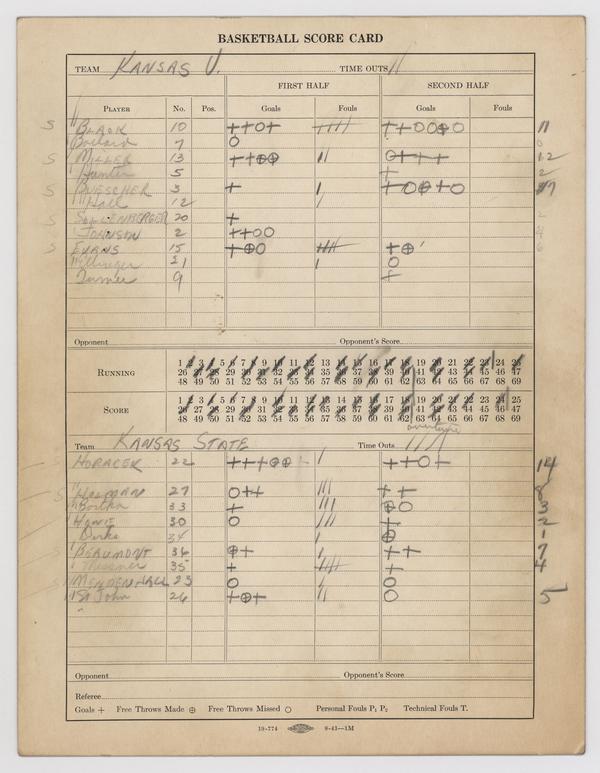 BASKETBALL SCORE CARD
TEAM KANSAS U. TIME OUTS //
FIRST HALF SECOND HALF
PLAYER No. Pos. Goals Fouls Goals Fouls
S BLACK 10 ++O+ ///// ++OO⊕O 11
Ballard 7 O 0
S MILLER 13 ++⊕⊕ // O+++ 12
Hunter 5 + 2
S BUESCHER 3 + / +O⊕+O 7
Hall 12 /
S SOLLENBERGER 20 + 2
S JOHNSON 2 ++OO 4
S EVANS 15 +⊕O //// +⊕ 6
Ettinger 21 / O
Turner 9 +
Opponent Opponent's Score
RUNNING
1 2 3 4 5 6 7 8 9 10 11 12 13 14 15 16 17 18 19 20 21 22 23 24 25
26 27 28 29 30 31 32 33 34 35 36 37 38 39 40 41 42 43 44 45 46 47
48 49 50 51 52 53 54 55 56 57 58 59 60 61 62 63 64 65 66 67 68 69
SCORE
1 2 3 4 5 6 7 8 9 10 11 12 13 14 15 16 17 18 19 20 21 22 23 24 25
26 27 28 29 30 31 32 33 34 35 36 37 38 39 40 41 42 43 44 45 46 47
48 49 50 51 52 53 54 55 56 57 58 59 60 61 62 63 64 65 66 67 68 69
overtime
Team KANSAS STATE Time Outs ////
HORACEK 22 +++⊕⊕ / ++O+ 14
S HOLMAN 27 O++ /// ++
Bortka 33 + /// ⊕O 3
HOWE 30 O /// + 2
Dirks 34 / ⊕ 1
S BEAUMONT 36 ⊕+ / ++ 7
Messner 35 + ///// + 4
S MENDENHALL 23 O / O
St John 26 +⊕+ // O 5
Opponent Opponent's Score
Referee
Goals + Free Throws Made ⊕ Free Throws Missed O Personal Fouls P₁ P₂ Technical Fouls T.
19-774 8-41—1M